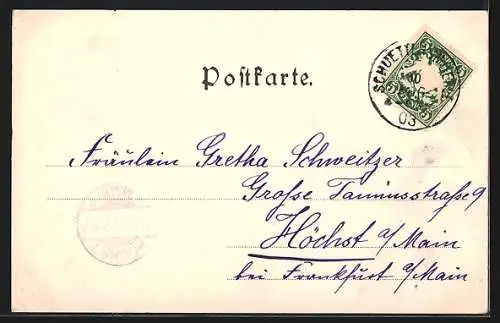 Postkarte.
10
AUG
03
Fräulein Gretha Schweitzer
Grosse Taunusstraße 9
Höchst a/Main
bei Frankfurt a/Main